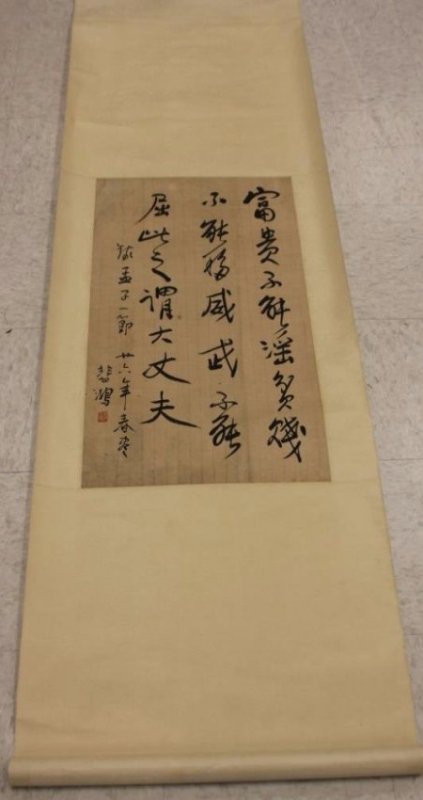 富貴不能淫貧賤
不能移威武不能
屈此之謂大丈夫
錄孟子一節 廿六年春
悲鴻